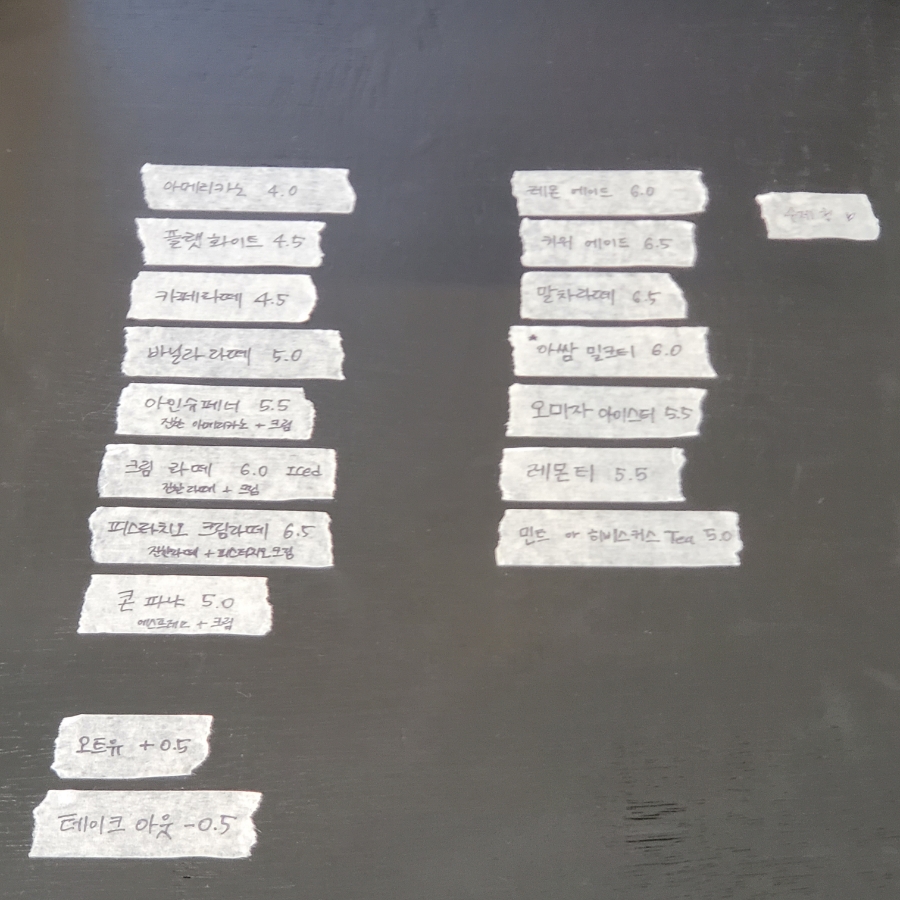 아메리카노 4.0
플랫 화이트 4.5
카페라떼 4.5
바닐라 라떼 5.0
아인슈페너 5.5
진한 아메리카노 + 크림
크림 라떼 6.0 Iced
진한라떼 + 크림
피스타치오 크림라떼 6.5
진한라떼 + 피스타치오크림
콘 파냐 5.0
에스프레소 + 크림
오트유 +0.5
테이크 아웃 -0.5
레몬 에이드 6.0
키위 에이드 6.5
말차라떼 6.5
*아쌈 밀크티 6.0
오미자 아이스티 5.5
레몬티 5.5
민트 or 히비스커스 Tea 5.0